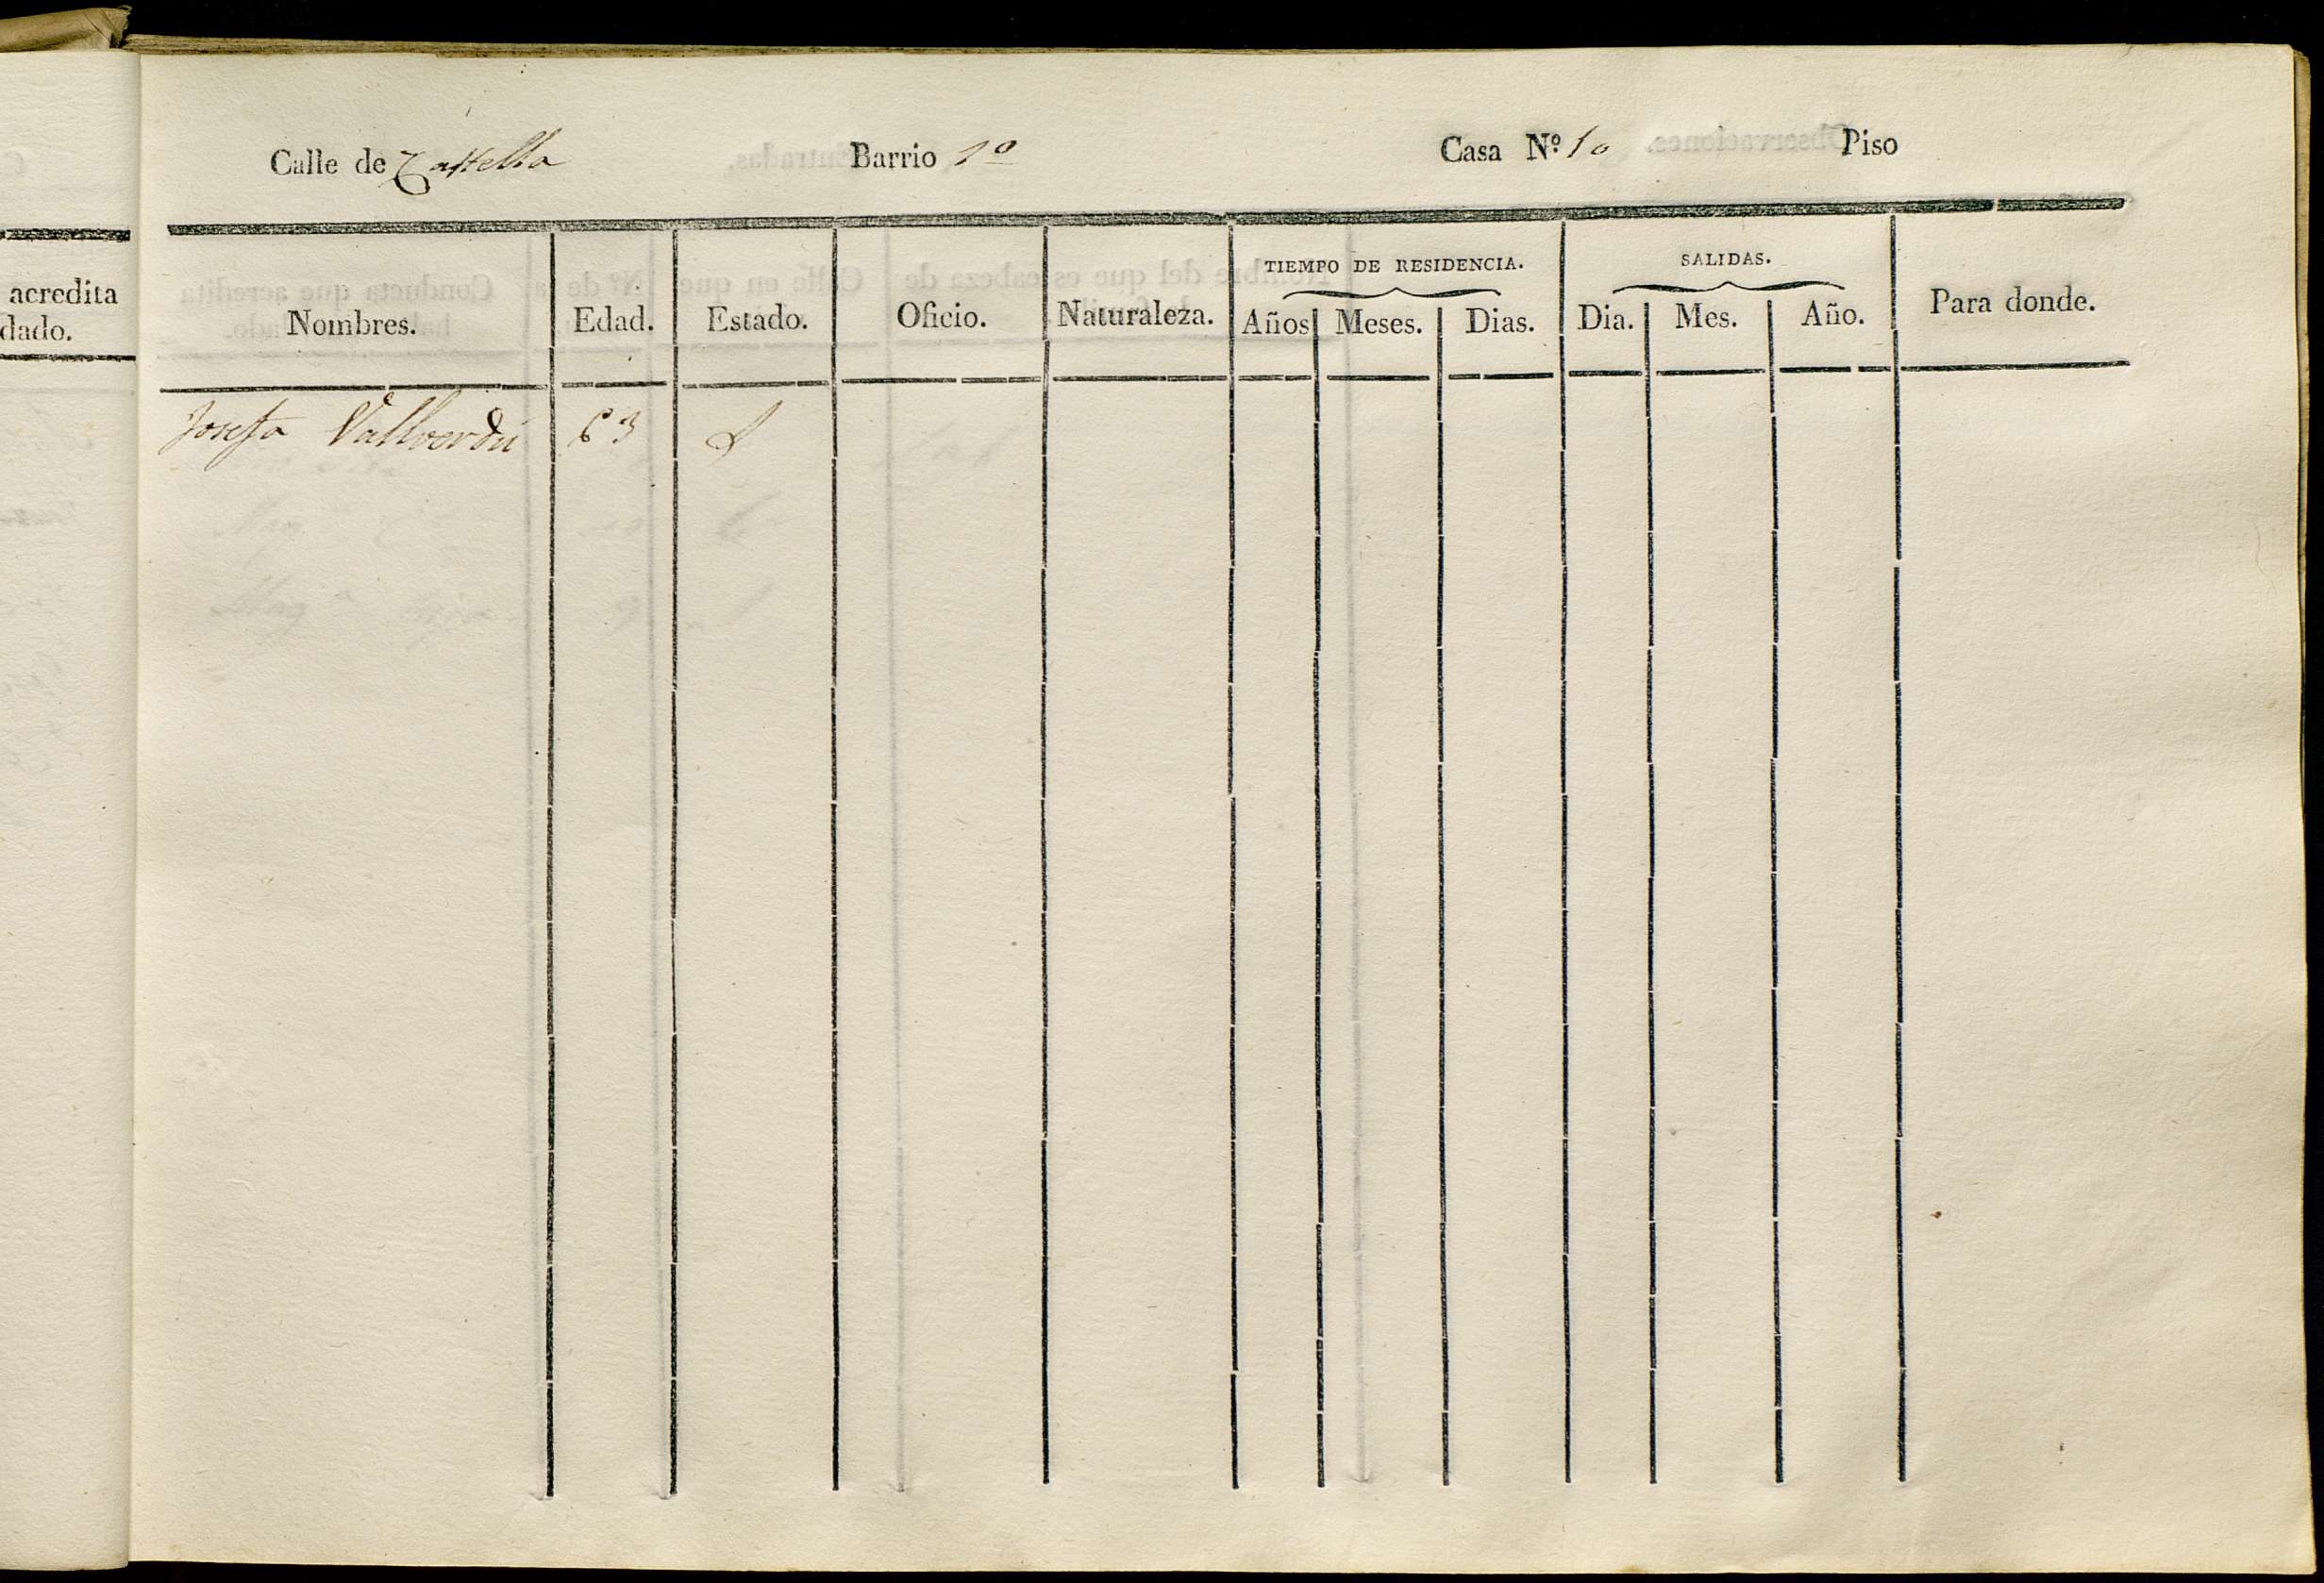 acredita
dado.
Calle de Castella Barrio 1º Casa Nº 10 Piso
TIEMPO DE RESIDENCIA. SALIDAS.
Nombres. Edad. Estado. Oficio. Naturaleza. Años Meses. Dias. Dia. Mes. Año. Para donde.
Josefa Vallverdú 63